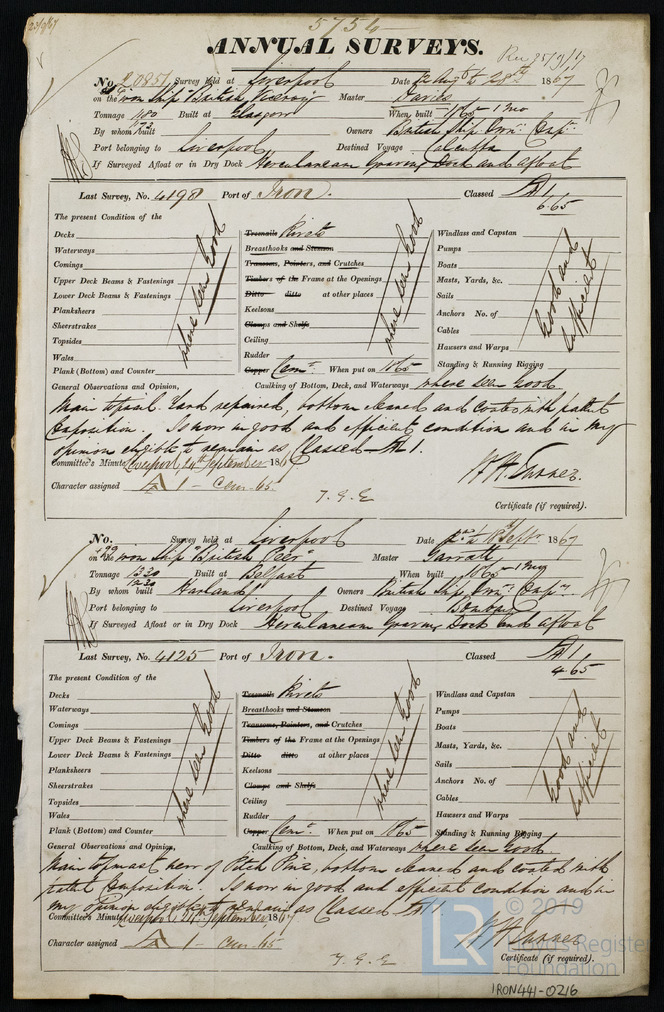 23/9/67
5756
ANNUAL SURVEYS.
Rec 25/9/67
No. 20851 Survey held at Liverpool Date 28th 1867
on the Iron Ship "British Viceroy" Master Davies
Tonnage 1180 Built at Glasgow When built 1865 - 1 mo
By whom built Owners British Ship Own. Copy.
Port belonging to Liverpool Destined Voyage Calcutta
If Surveyed Afloat or in Dry Dock Herculaneam Graving Dock and afloat
Last Survey, No. 4198 Port of Iron. Classed A1 6.65
The present Condition of the
Decks Treenails Rivets Windlass and Capstan
Waterways Breasthooks and Stemson Pumps
Comings Transoms, Pointers, and Crutches Boats
Upper Deck Beams & Fastenings Timbers of the Frame at the Openings Masts, Yards, &c.
Lower Deck Beams & Fastenings Ditto ditto at other places Sails
Planksheers Keelsons Anchors No. of
Sheerstrakes Clamps and Shelfs Cables
Topsides Ceiling Hawsers and Warps
Wales Rudder Standing & Running Rigging
Plank (Bottom) and Counter Copper Cemt. When put on 1865
where seen Good
where seen Good
Good and Sufficient
General Observations and Opinion, Caulking of Bottom, Deck, and Waterways where seen Good
Main topsail Yard repaired, bottom cleaned and coated with patent
Composition. Is now in good and efficient condition and in my
opinion eligible to remain as Classed A1.
Committee's Minute Liverpool 24th September 1867
W. H. Turner
Character assigned A1 - Cem. 65
Certificate (if required).
No. Survey held at Liverpool Date 18th Sept. 1867
on the Iron Ship "British Peer" Master Garratt
Tonnage 1330 Built at Belfast When built 1865 - 1 mo
By whom built Harland Owners British Ship Own. Copy.
Port belonging to Liverpool Destined Voyage Bombay
If Surveyed Afloat or in Dry Dock Herculaneam Graving Dock and afloat
Last Survey, No. 4125 Port of Iron. Classed A1 4.65
The present Condition of the
Decks Treenails Rivets Windlass and Capstan
Waterways Breasthooks and Stemson Pumps
Comings Transoms, Pointers, and Crutches Boats
Upper Deck Beams & Fastenings Timbers of the Frame at the Openings Masts, Yards, &c.
Lower Deck Beams & Fastenings Ditto ditto at other places Sails
Planksheers Keelsons Anchors No. of
Sheerstrakes Clamps and Shelfs Cables
Topsides Ceiling Hawsers and Warps
Wales Rudder
Plank (Bottom) and Counter Copper Cemt. When put on 1865 Standing & Running Rigging
where seen Good
where seen Good
Good and Sufficient
General Observations and Opinion, Caulking of Bottom, Deck, and Waterways where seen Good
Main topmast new of Pitch Pine, bottom cleaned and coated with
patent Composition. Is now in good and efficient condition and in
my opinion eligible to remain as Classed A1.
Committee's Minute Liverpool 24th September 1867
W. H. Turner
Character assigned A1 - Cem. 65
Certificate (if required).
LR © 2019
Lloyd's Register
Foundation
IRON441-0216